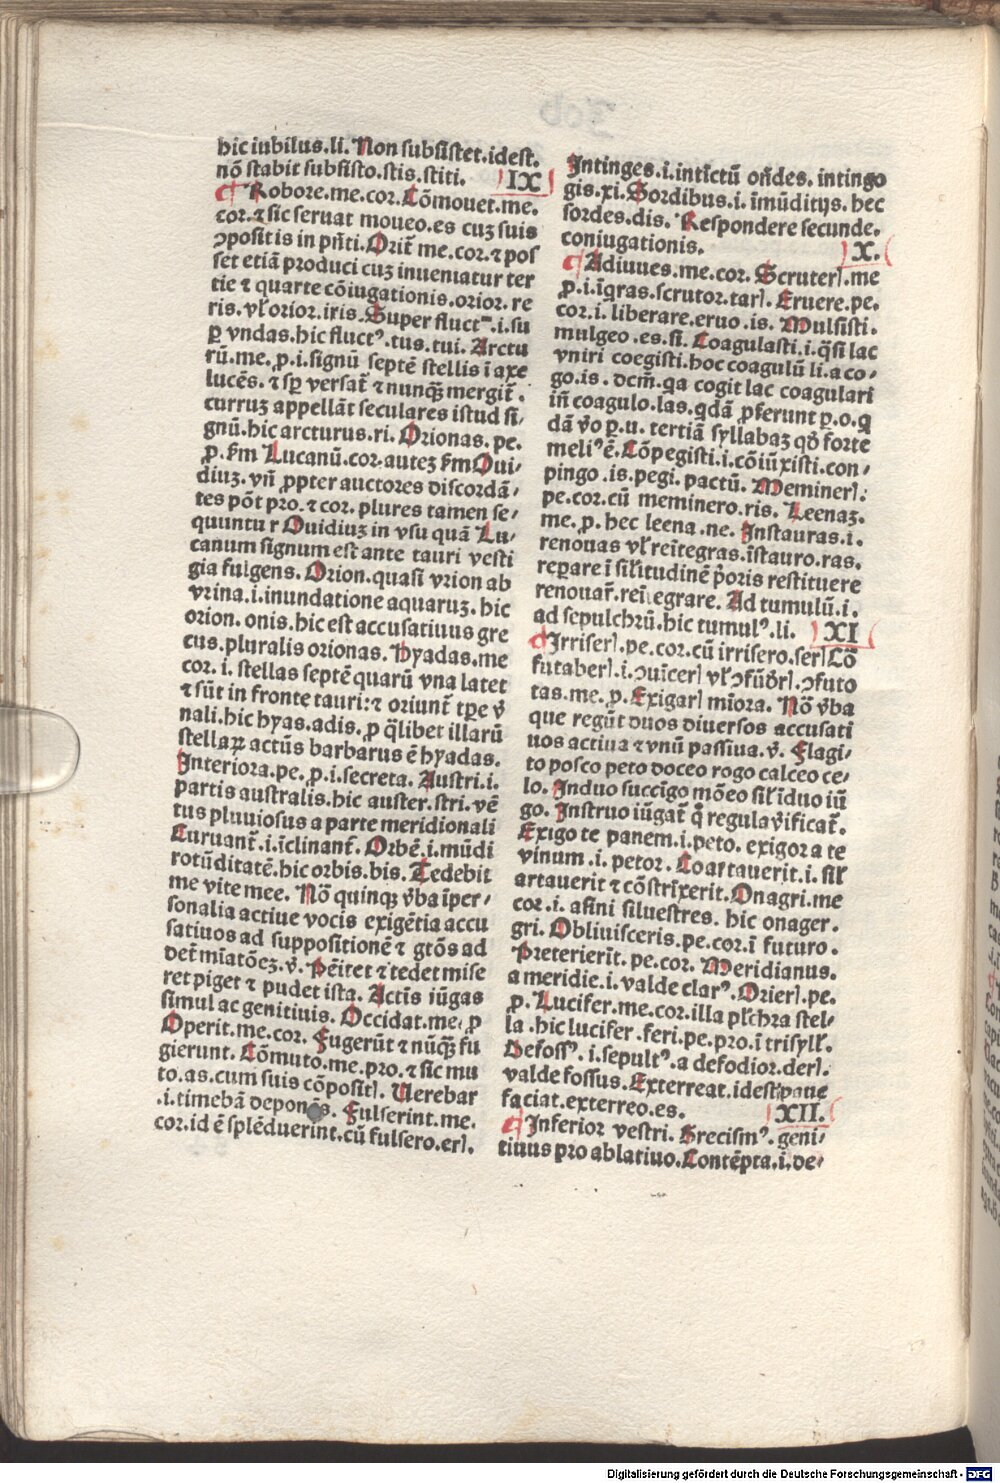 hic iubilus.li. Non subsistet.idest.
nõ stabit subsisto.stis.stiti. IX
¶ Robore.me.cor. Cõmouet.me.
cor.⁊ sic seruat moueo.es cuȝ suis
ꝯpositis in pñti. Orit̃ me.cor.⁊ pos
set etiã produci cuȝ inueniatur ter
tie ⁊ quarte cõiugationis.orior.re
ris.vl̃ orior.iris. Super fluct⁹.i.su
ꝑ vndas.hic fluct⁹.tus.tui. Arctu
rũ.me.ꝓ.i.signũ septẽ stellis ĩ axe
lucẽs.⁊ sꝑ versat̃ ⁊ nunqꝫ mergit̃.
curruȝ appellãt seculares istud si-
gnũ.hic arcturus.ri. Orionas.pe.
ꝓ.ẜm Lucanũ.cor.auteȝ ẜm Oui-
diuȝ.vñ ꝓpter auctores discordã-
tes põt pro.⁊ cor.plures tamen se-
quuntur Ouidiuȝ in vsu quã Lu-
canum signum est ante tauri vesti
gia fulgens. Orion.quasi vrion ab
vrina.i.inundatione aquaruȝ.hic
orion.onis.hic est accusatiuus gre
cus.pluralis orionas. Hyadas.me
cor.i.stellas septẽ quarũ vna latet
⁊ sũt in fronte tauri:⁊ oriunt̃ tꝑe v̾
nali.hic hyas.adis.ꝓ q̃libet illarũ
stellaꝝ actũs barbarus ẽ hyadas.
Interiora.pe.ꝓ.i.secreta. Austri.i.
partis australis.hic auster.stri.vẽ
tus pluuiosus a parte meridionali
Curuant̃.i.ĩclinant̃. Orbẽ.i.mũdi
rotũditatẽ.hic orbis.bis. Tedebit
me vite mee. Nõ quinqꝫ v̾ba ĩper-
sonalia actiue vocis exigẽtia accu
satiuos ad suppositionẽ ⁊ gtõs ad
det̃miatõeȝ.v̾. Pẽitet ⁊ tedet mise
ret piget ⁊ pudet ista. Actis iũgas
simul ac genitiuis. Occidat.me.ꝓ
Operit.me.cor. Fugerũt ⁊ nũqꝫ fu
gierunt. Cõmuto.me.pro.⁊ sic mu
to.as.cum suis cõposit'. Uerebar
.i.timebã deponẽs. Fulserint.me.
cor.id ẽ splẽduerint.cũ fulsero.er'.
Intinges.i.intictũ oñdes.intingo
gis.xi. Sordibus.i.ĩmũditijs.hec
sordes.dis. Respondere secunde.
coniugationis. X.
¶ Adiuues.me.cor. Scruter'.me
ꝓ.i.ĩqras.scrutor.tar'. Eruere.pe.
cor.i.liberare.eruo.is. Mulsisti.
mulgeo.es.si. Coagulasti.i.q̃si lac
vniri coegisti.hoc coagulũ li.a co-
go.is.dcm̃.qa cogit lac coagulari
iñ coagulo.las.qdã ꝓferunt ꝑ.o.q
dã v̾o ꝑ.u.tertiã syllabaȝ qđ forte
meli⁹ ẽ. Cõpegisti.i.cõiũxisti.con-
pingo.is.pegi.pactũ. Meminer'.
pe.cor.cũ meminero.ris. Leenaȝ.
me.ꝓ.hec leena.ne. Instauras.i.
renouas vl̃ reĩtegras.ĩstauro.ras.
reꝑare ĩ sil̃itudinẽ p̃oris restituere
renouar̃.reĩtegrare. Ad tumulũ.i.
ad sepulchrũ.hic tumul⁹.li. XI
¶ Irriser'.pe.cor.cũ irrisero.ser' Cõ
futaber'.i.ꝯuĩcer' vl̃ ꝯfũđr'.ꝯfuto
tas.me.ꝓ. Exigar' mĩora. Nõ v̾ba
que regũt duos diuersos accusati
uos actiua ⁊ vnũ passiua.v̾. Flagi-
to posco peto doceo rogo calceo ce-
lo. Induo succĩgo mõeo sil̃ ĩduo iũ
go. Instruo iũgat̃ q̃ regula v̾ificat̃.
Exigo te panem.i.peto.exigor a te
vinum.i.petor. Coartauerit.i.sil̃
artauerit ⁊ cõstrĩxerit. Onagri.me
cor.i.asini siluestres.hic onager.
gri. Obliuisceris.pe.cor.ĩ futuro.
Preterierit.pe.cor. Meridianus.
a meridie.i.valde clar⁹. Orier'.pe.
ꝓ. Lucifer.me.cor.illa pl̃chra stel-
la.hic lucifer.feri.pe.pro.ĩ trisyll̃.
Defoss⁹.i.sepult⁹.a defodior.der'.
valde fossus. Exterreat.idest paue
faciat.exterreo.es. XII.
¶ Inferior vestri. Grecism⁹.geni-
tiuus pro ablatiuo. Contẽpta.i.de-
Digitalisierung gefördert durch die Deutsche Forschungsgemeinschaft - DFG